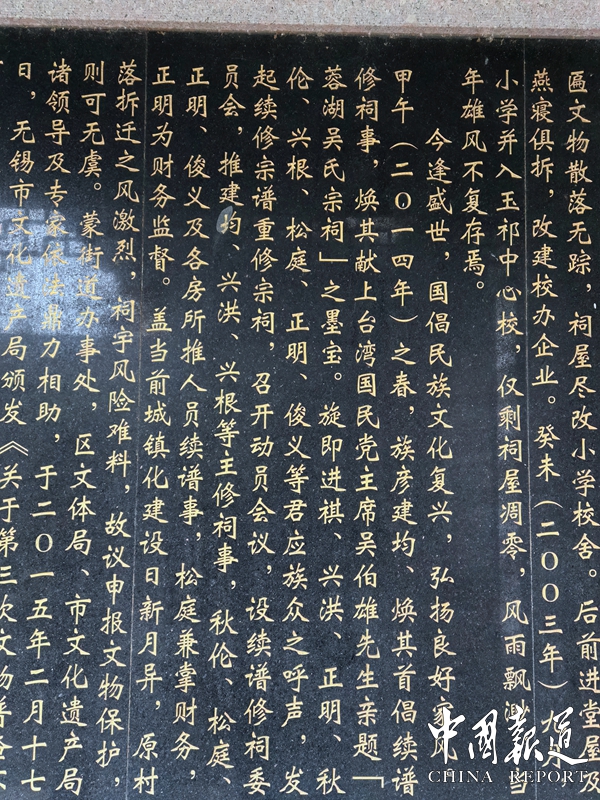 匾文物散落无踪，祠屋尽改小学校舍。后前进堂屋及
燕寝俱拆，改建校办企业。癸未（二OO三年）
小学并入玉祁中心校，仅剩祠屋凋零，风雨飘 当
年雄风不复存焉。
今逢盛世，国倡民族文化复兴，弘扬良好家风
甲午（二O一四年）之春，族彦建均、焕其首倡续谱
修祠事，焕其献上台湾国民党主席吴伯雄先生亲题「
蓉湖吴氏宗祠」之墨宝。旋即进祺、兴洪、正明、秋
伦、兴根、松庭、正明、俊义等君应族众之呼声，发
起续修宗谱重修宗祠，召开动员会议，设续谱修祠委
员会，推建均、兴洪、兴根等主修祠事，秋伦、松庭、
正明、俊义及各房所推人员续谱事，松庭兼掌财务，
正明为财务监督。盖当前城镇化建设日新月异，原村
落拆迁之风激烈，祠宇风险难料，故议申报文物保护，
则可无虞。蒙街道办事处，区文体局、市文化遗产局
诸领导及专家依法鼎力相助，于二O一五年二月十七
日，无锡市文化遗产局颁发《关于第三次文物普查
中国报道
CHINA REPORT